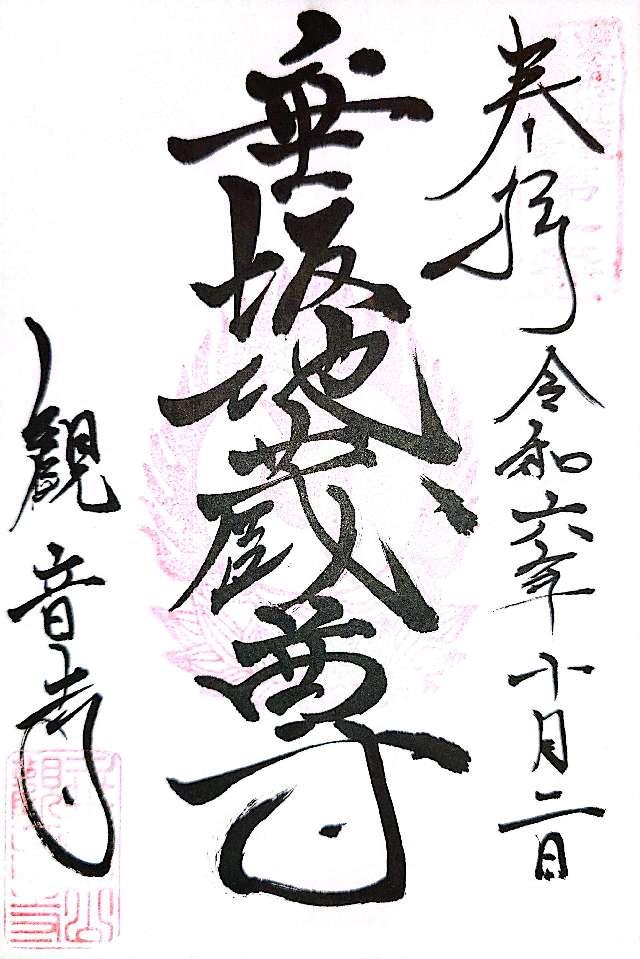 奉拝
令和六年十月二日
垂坂地蔵尊
観音寺